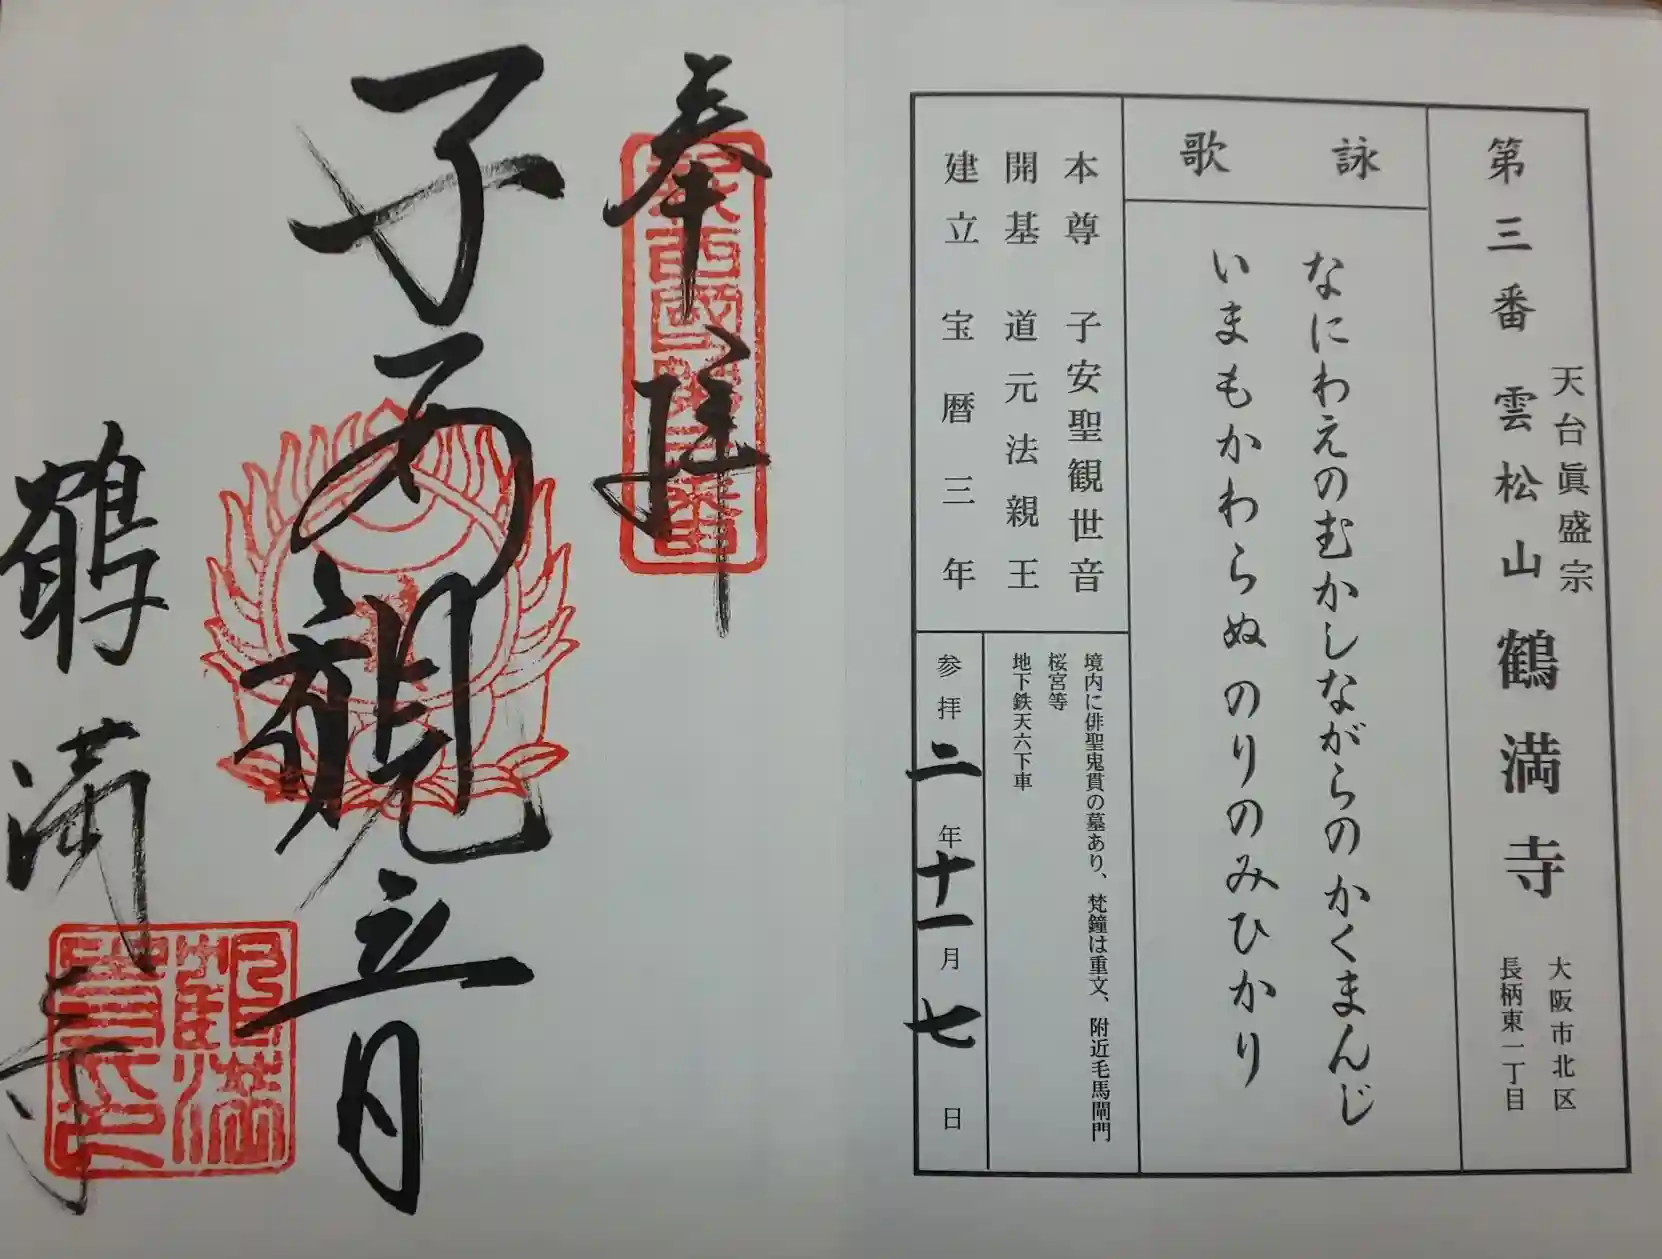 第三番 雲松山 鶴満寺
天台眞盛宗
大阪市北区
長柄東一丁目
詠歌
なにわえのむかしながらのかくまんじ
いまもかわらぬのりのみひかり
本尊 子安聖観世音
開基 道元法親王
建立 宝暦三年
境内に俳聖鬼貫の墓あり、梵鐘は重文、附近毛馬閘門
桜宮等
地下鉄天六下車
参拝二年十一月七日
奉拝
新西國第三番
子安観音
鶴満寺
鶴満